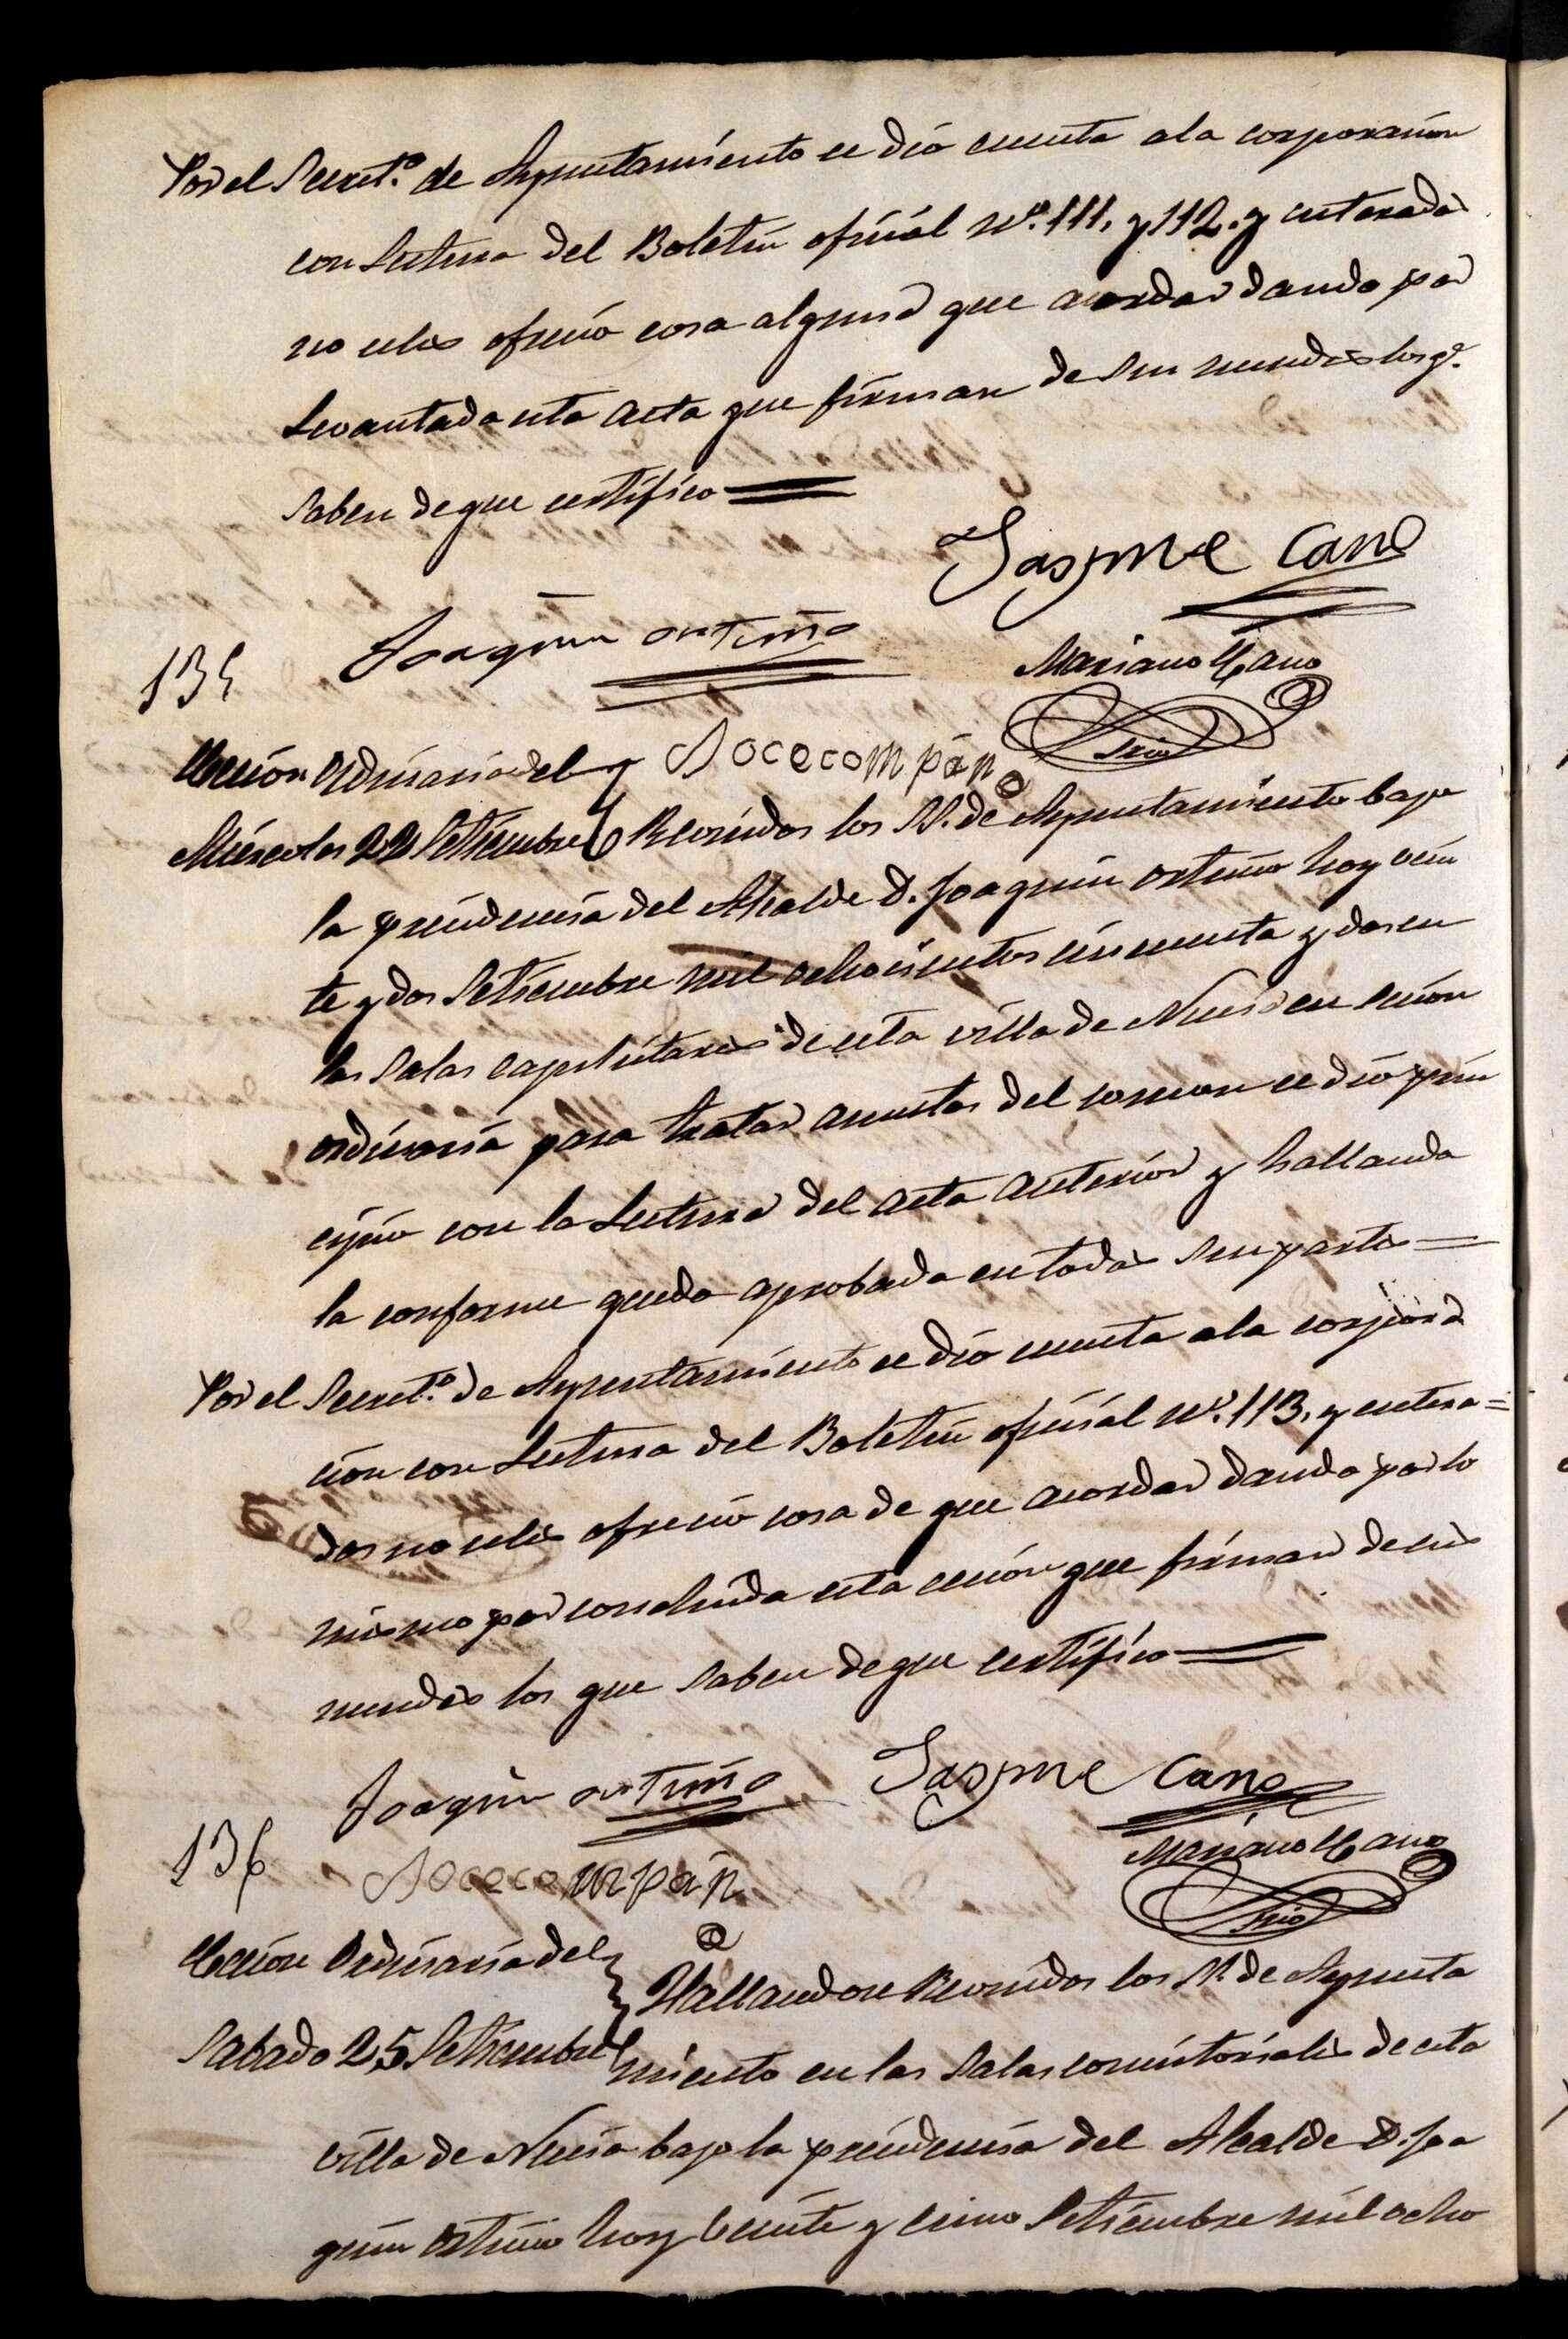 Por el Secret.º de Ayuntamiento se dió cuenta a la corporacion
con Lectura del Boletin oficial nº. 111. y 112. y enterados
no seles ofreció cosa alguna que acordar dando por
Levantada esta acta que firman de sus mercedes los q.e
saben de que certifico
Jayme Cano
Joaquin ortuño
135
Mariano Cano
Srio
Jocecompañ
Seción Ordinaria del
Miércoles 22 Setiembre
Reonidos los SS. de Ayuntamiento bajo
la presidencia del Alcalde D. Joaquin ortuño hoy vein
te y dos Setiembre mil ochocientos cincuenta y dos en
las salas capitulares de esta villa de Nucia en secion
ordinaria para tratar asuntos del comun se dió prin
cipio con la Lectura del acta anterior y hallando
la conforme queda aprobada en todas sus partes =
Por el Secret.º de Ayuntamiento se dió cuenta a la corpora
cion con Lectura del Boletin oficial nº. 113. y entera=
dos no seles ofreció cosa de que acordar dando por lo
mismo por concluida esta seción que firman de sus
mercedes los que saben de que certifico
Joaquin ortuño Jayme Cano
136
Mariano Cano
Srio
Jocecompañ
Seción Ordinaria del
Sabado 25 Setiembre
Hallandose Reonidos los SS. de Ayunta
miento en las salas concistoriales de esta
villa de Nucia bajo la presidencia del Alcalde D. Joa
quin ortuño hoy veinte y cinco Setiembre mil ocho